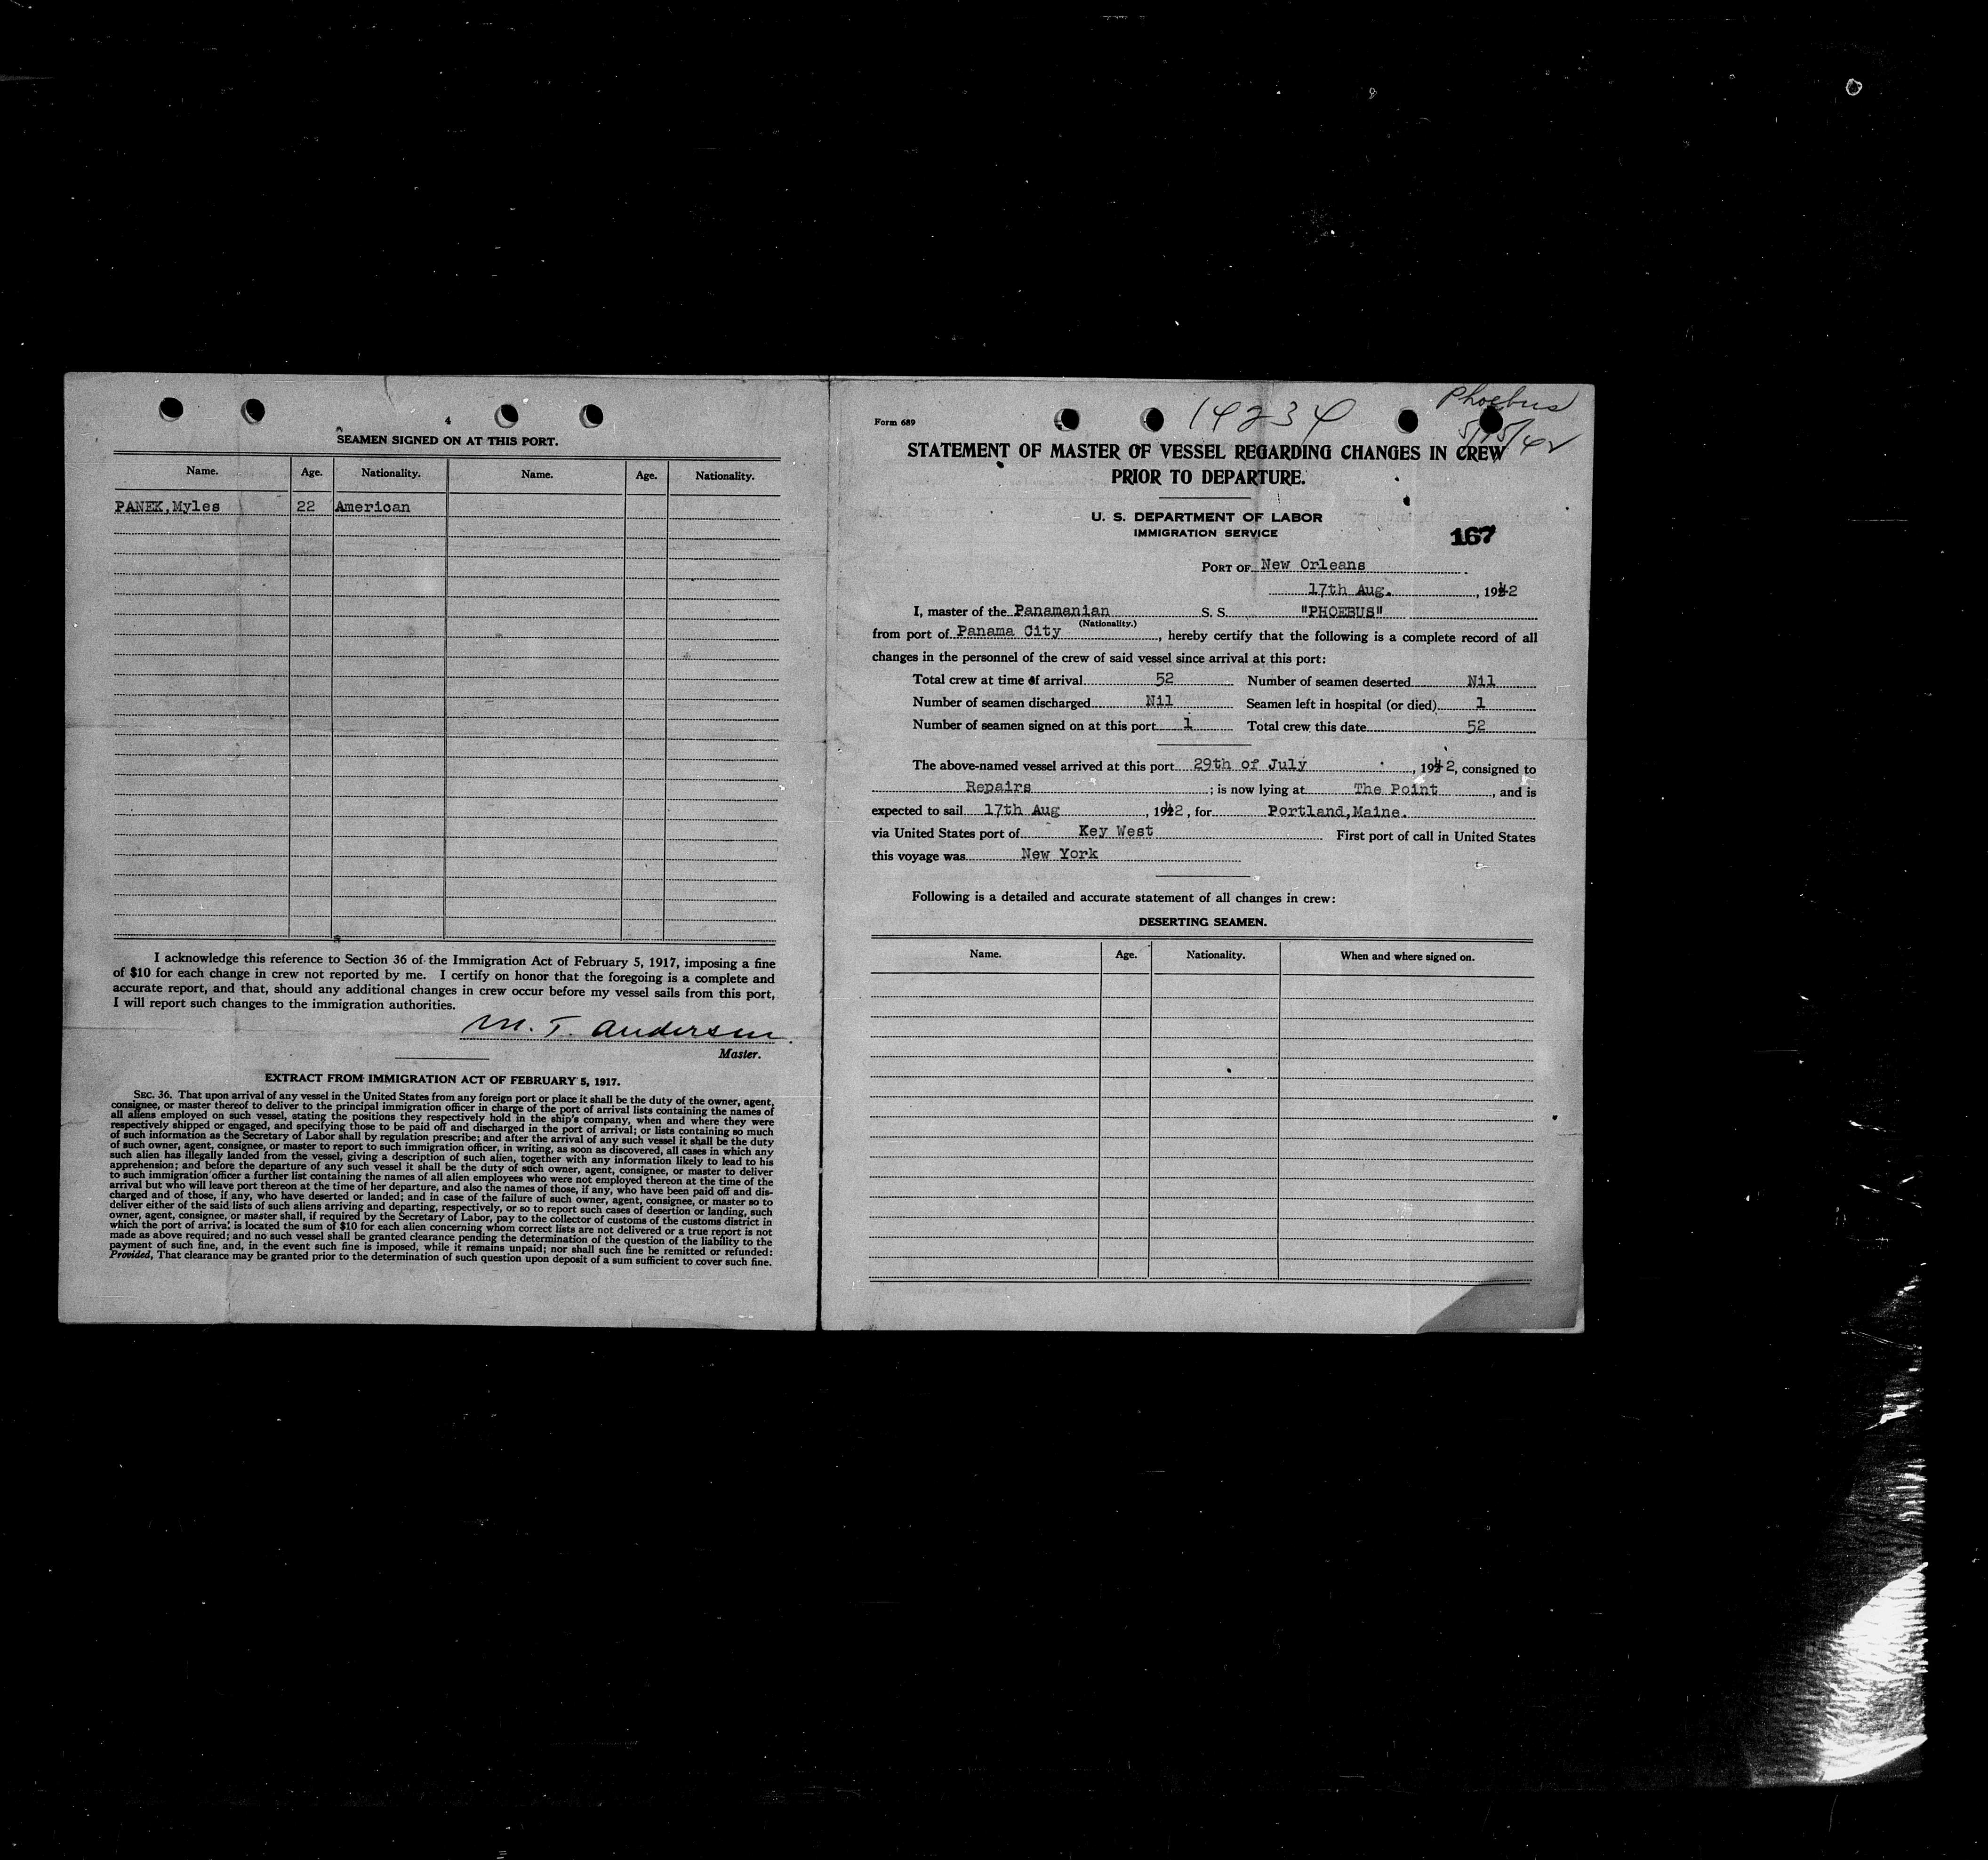 4
SEAMEN SIGNED ON AT THIS PORT.
Name. Age. Nationality. Name. Age. Nationality.
PANEK,Myles 22 American
I acknowledge this reference to Section 36 of the Immigration Act of February 5, 1917, imposing a fine
of $10 for each change in crew not reported by me. I certify on honor that the foregoing is a complete and
accurate report, and that, should any additional changes in crew occur before my vessel sails from this port,
I will report such changes to the immigration authorities.
M. T. Andersen
Master.
EXTRACT FROM IMMIGRATION ACT OF FEBRUARY 5, 1917.
SEC. 36. That upon arrival of any vessel in the United States from any foreign port or place it shall be the duty of the owner, agent,
consignee, or master thereof to deliver to the principal immigration officer in charge of the port of arrival lists containing the names of
all aliens employed on such vessel, stating the positions they respectively hold in the ship's company, when and where they were
respectively shipped or engaged, and specifying those to be paid off and discharged in the port of arrival; or lists containing so much
of such information as the Secretary of Labor shall by regulation prescribe; and after the arrival of any such vessel it shall be the duty
of such owner, agent, consignee, or master to report to such immigration officer, in writing, as soon as discovered, all cases in which any
such alien has illegally landed from the vessel, giving a description of such alien, together with any information likely to lead to his
apprehension; and before the departure of any such vessel it shall be the duty of such owner, agent, consignee, or master to deliver
to such immigration officer a further list containing the names of all alien employees who were not employed thereon at the time of the
arrival but who will leave port thereon at the time of her departure, and also the names of those, if any, who have been paid off and dis-
charged and of those, if any, who have deserted or landed; and in case of the failure of such owner, agent, consignee, or master so to
deliver either of the said lists of such aliens arriving and departing, respectively, or so to report such cases of desertion or landing, such
owner, agent, consignee, or master shall, if required by the Secretary of Labor, pay to the collector of customs of the customs district in
which the port of arrival is located the sum of $10 for each alien concerning whom correct lists are not delivered or a true report is not
made as above required; and no such vessel shall be granted clearance pending the determination of the question of the liability to the
payment of such fine, and, in the event such fine is imposed, while it remains unpaid; nor shall such fine be remitted or refunded:
Provided, That clearance may be granted prior to the determination of such question upon deposit of a sum sufficient to cover such fine.
Phoebus
Form 689 14234
5/15/42
STATEMENT OF MASTER OF VESSEL REGARDING CHANGES IN CREW
PRIOR TO DEPARTURE.
U. S. DEPARTMENT OF LABOR
IMMIGRATION SERVICE
167
PORT OF New Orleans
17th Aug. , 1942
I, master of the Panamanian S. S. "PHOEBUS"
(Nationality.)
from port of Panama City , hereby certify that the following is a complete record of all
changes in the personnel of the crew of said vessel since arrival at this port:
Total crew at time of arrival 52 Number of seamen deserted Nil
Number of seamen discharged Nil Seamen left in hospital (or died) 1
Number of seamen signed on at this port 1 Total crew this date 52
The above-named vessel arrived at this port 29th of July , 1942, consigned to
Repairs ; is now lying at The Point , and is
expected to sail 17th Aug , 1942, for Portland,Maine.
via United States port of Key West First port of call in United States
this voyage was New York
Following is a detailed and accurate statement of all changes in crew:
DESERTING SEAMEN.
Name. Age. Nationality. When and where signed on.